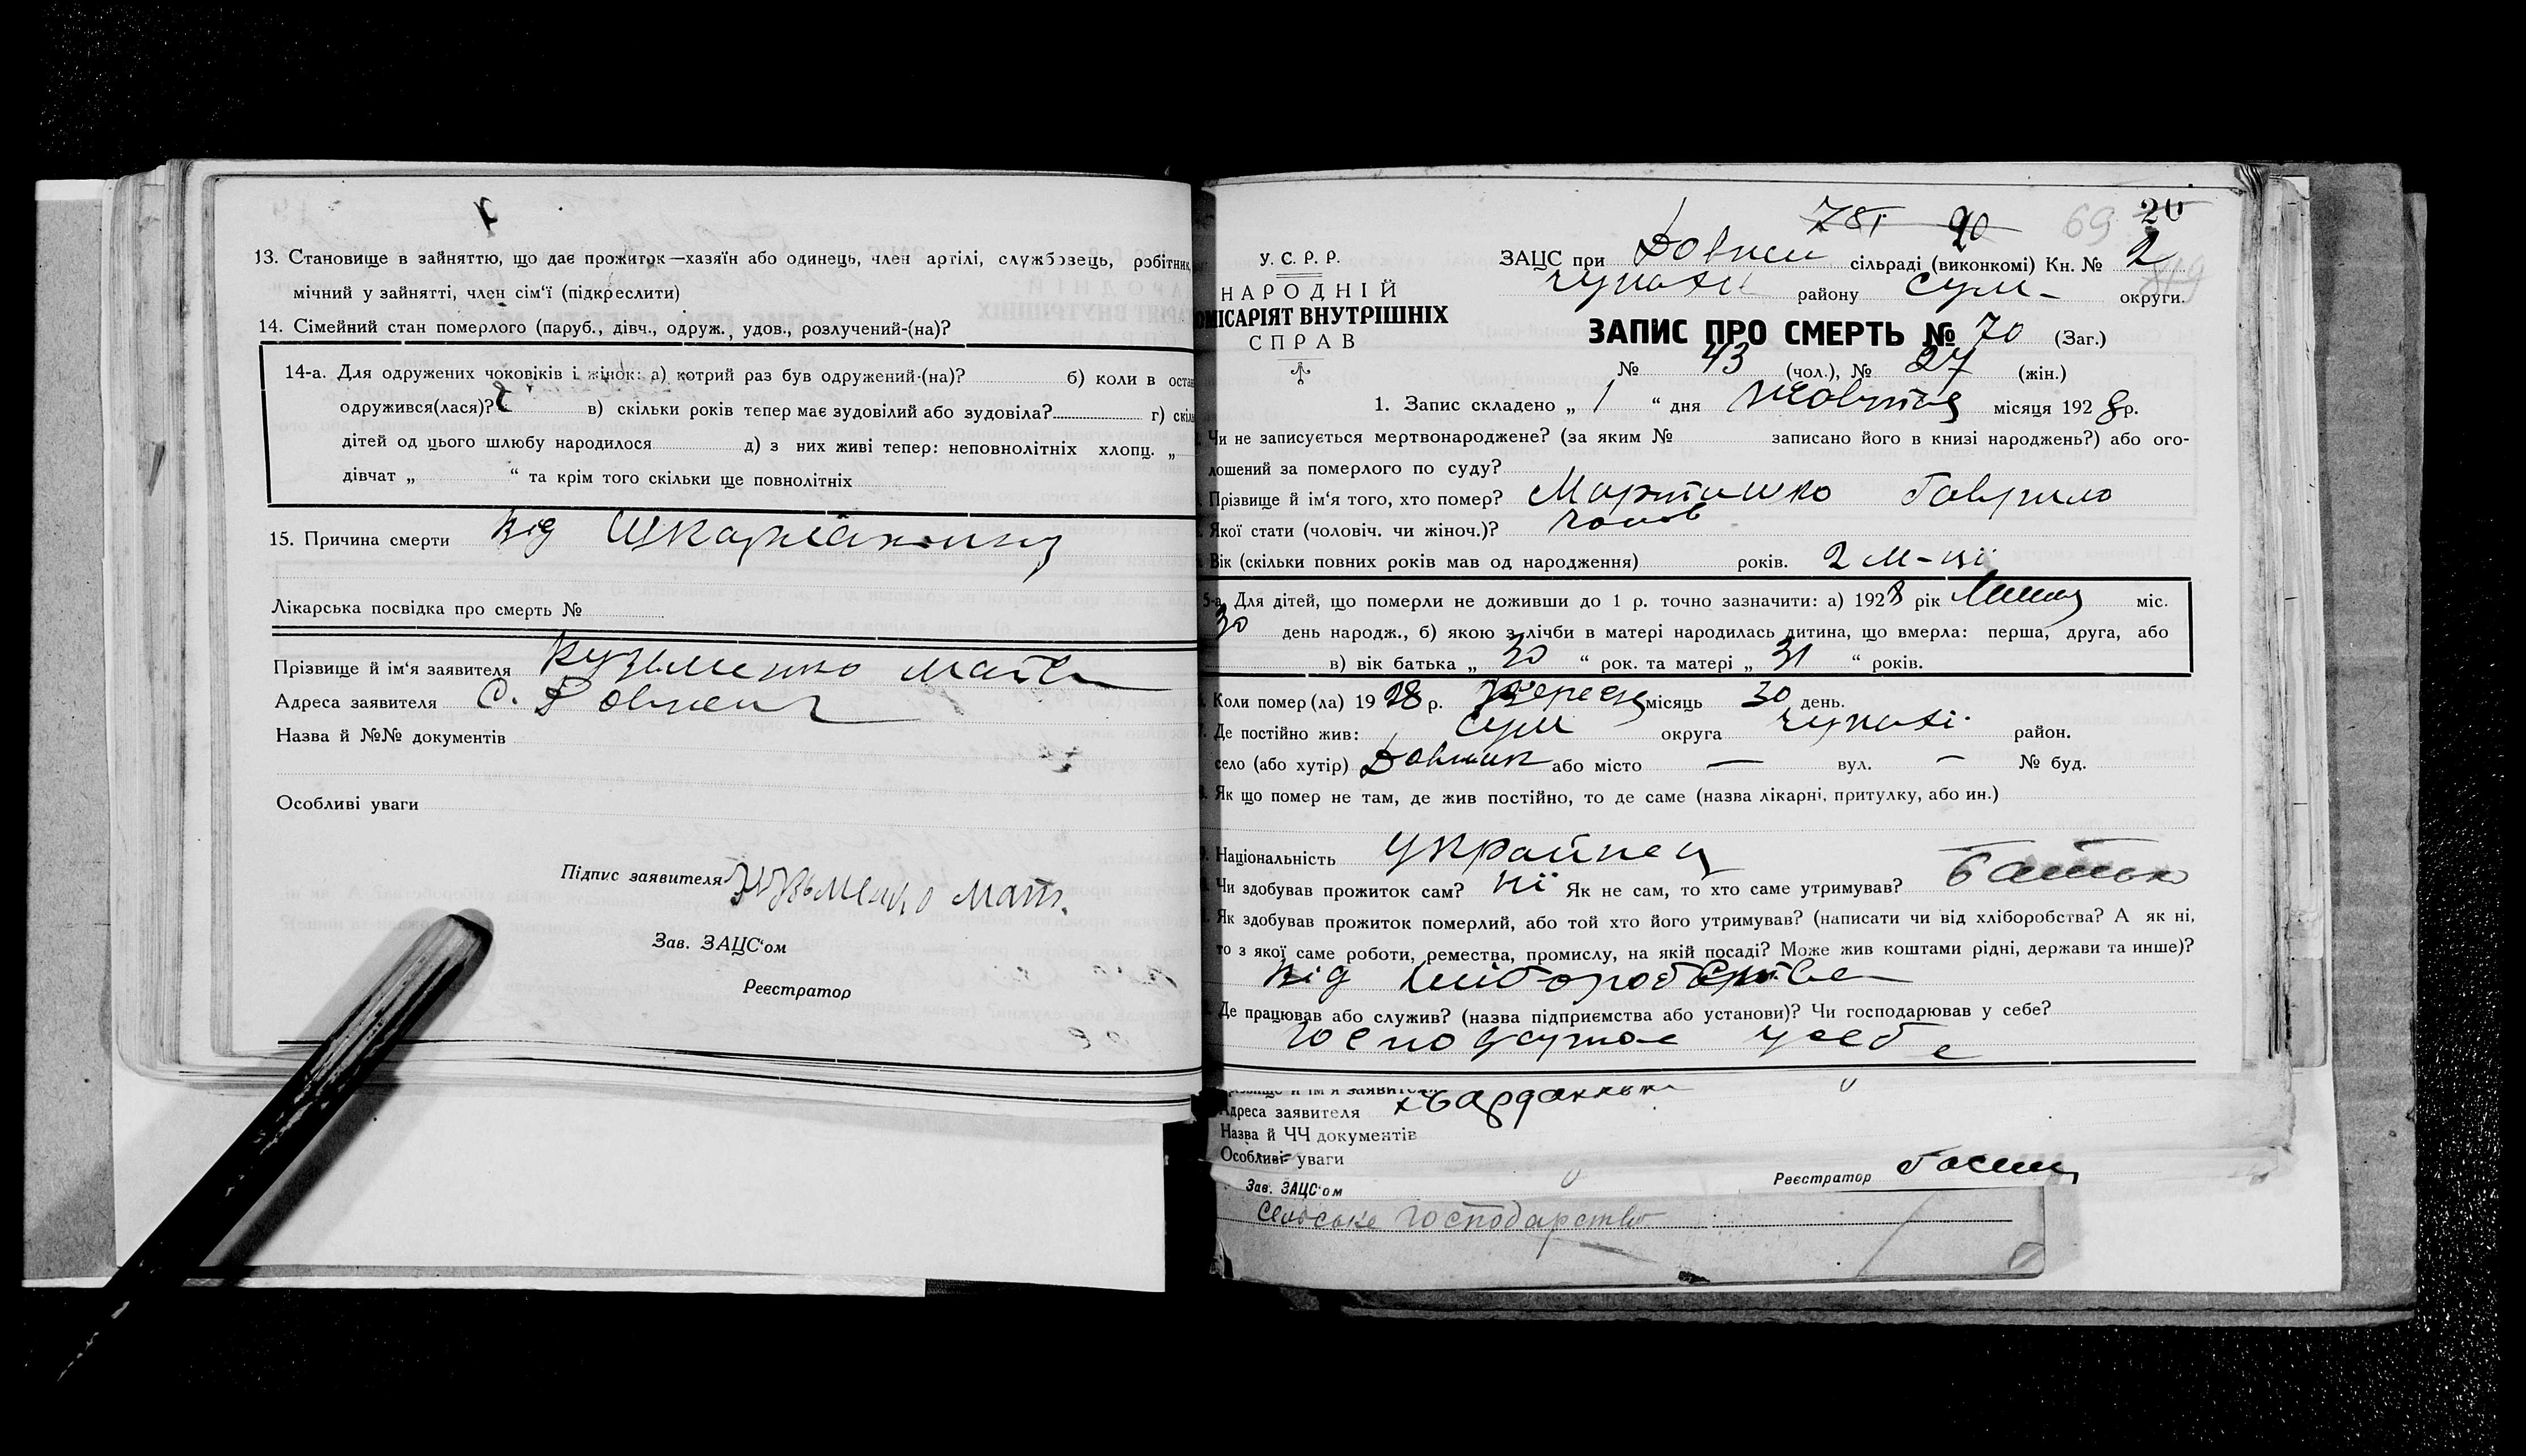 13. Становище в зайняттю, що дає прожиток—хазяїн або одинець, член артілі, службовець, робітник,
мічний у зайнятті, член сім‘ї (підкреслити)
14. Сімейний стан померлого (паруб., дівч., одруж., удов., розлучений-(на)?
14-а. Для одружених чоковіків і жінок: а) котрий раз був одружений-(на)? б) коли в остан
одружився(лася)? в) скільки років тепер має зудовілий або зудовіла? г) скіль
дітей од цього шлюбу народилося д) з них живі тепер: неповнолітніх хлопц. „
дівчат „ “ та крім того скільки ще повнолітніх
15. Причина смерти від Шкарлатини
Лікарська посвідка про смерть №
Прізвище й ім‘я заявителя Кузьменко Матв
Адреса заявителя с.
Назва й №№ документів
Особливі уваги
Підпис заявителя Кузьменко Матв.
Зав. ЗАЦС‘ом
Реєстратор
781 90 69 20
У. С. Р. Р.
НАРОДНІЙ
ОМІСАРІЯТ ВНУТРІШНІХ
СПРАВ
ЗАЦС при сільраді (виконкомі) Кн. № 2
Чупахі району Сум- округи.
ЗАПИС ПРО СМЕРТЬ № 70 (Заг.)
№ 43 (чол.), № 27 (жін.)
1. Запис складено „ 1 “ дня Жовтня місяця 1928 р.
Чи не записується мертвонароджене? (за яким № записано його в книзі народжень?) або ого-
лошений за померлого по суду?
Прізвище й ім‘я того, хто помер? Мартишко Гаврило
Якої стати (чоловіч. чи жіноч.)? чолов
Вік (скільки повних років мав од народження) років. 2 м-ці
5-а. Для дітей, що померли не доживши до 1 р. точно зазначити: а) 1928 рік Липня міс.
30 день народж., б) якою з лічби в матері народилась дитина, що вмерла: перша, друга, або
в) вік батька „ 30 “ рок. та матері „ 31 “ років.
Коли помер (ла) 1928 р. Вересня місяць 30 день.
Де постійно жив: Сум округа Чупахі. район.
село (або хутір) Довжик або місто — вул. — № буд.
Як що помер не там, де жив постійно, то де саме (назва лікарні, притулку, або ин.)
Національність Українец
Чи здобував прожиток сам? ні Як не сам, то хто саме утримував? батько
Як здобував прожиток померлий, або той хто його утримував? (написати чи від хліборобства? А як ні,
то з якої саме роботи, ремества, промислу, на якій посаді? Може жив коштами рідні, держави та инше)?
від хліборобства
Де працював або служив? (назва підприємства або установи)? Чи господарював у себе?
у себе
Адреса заявителя
Назва й ЧЧ документів
Особливі уваги
Зав. ЗАЦС‘ом Реєстратор
Сільське господарство